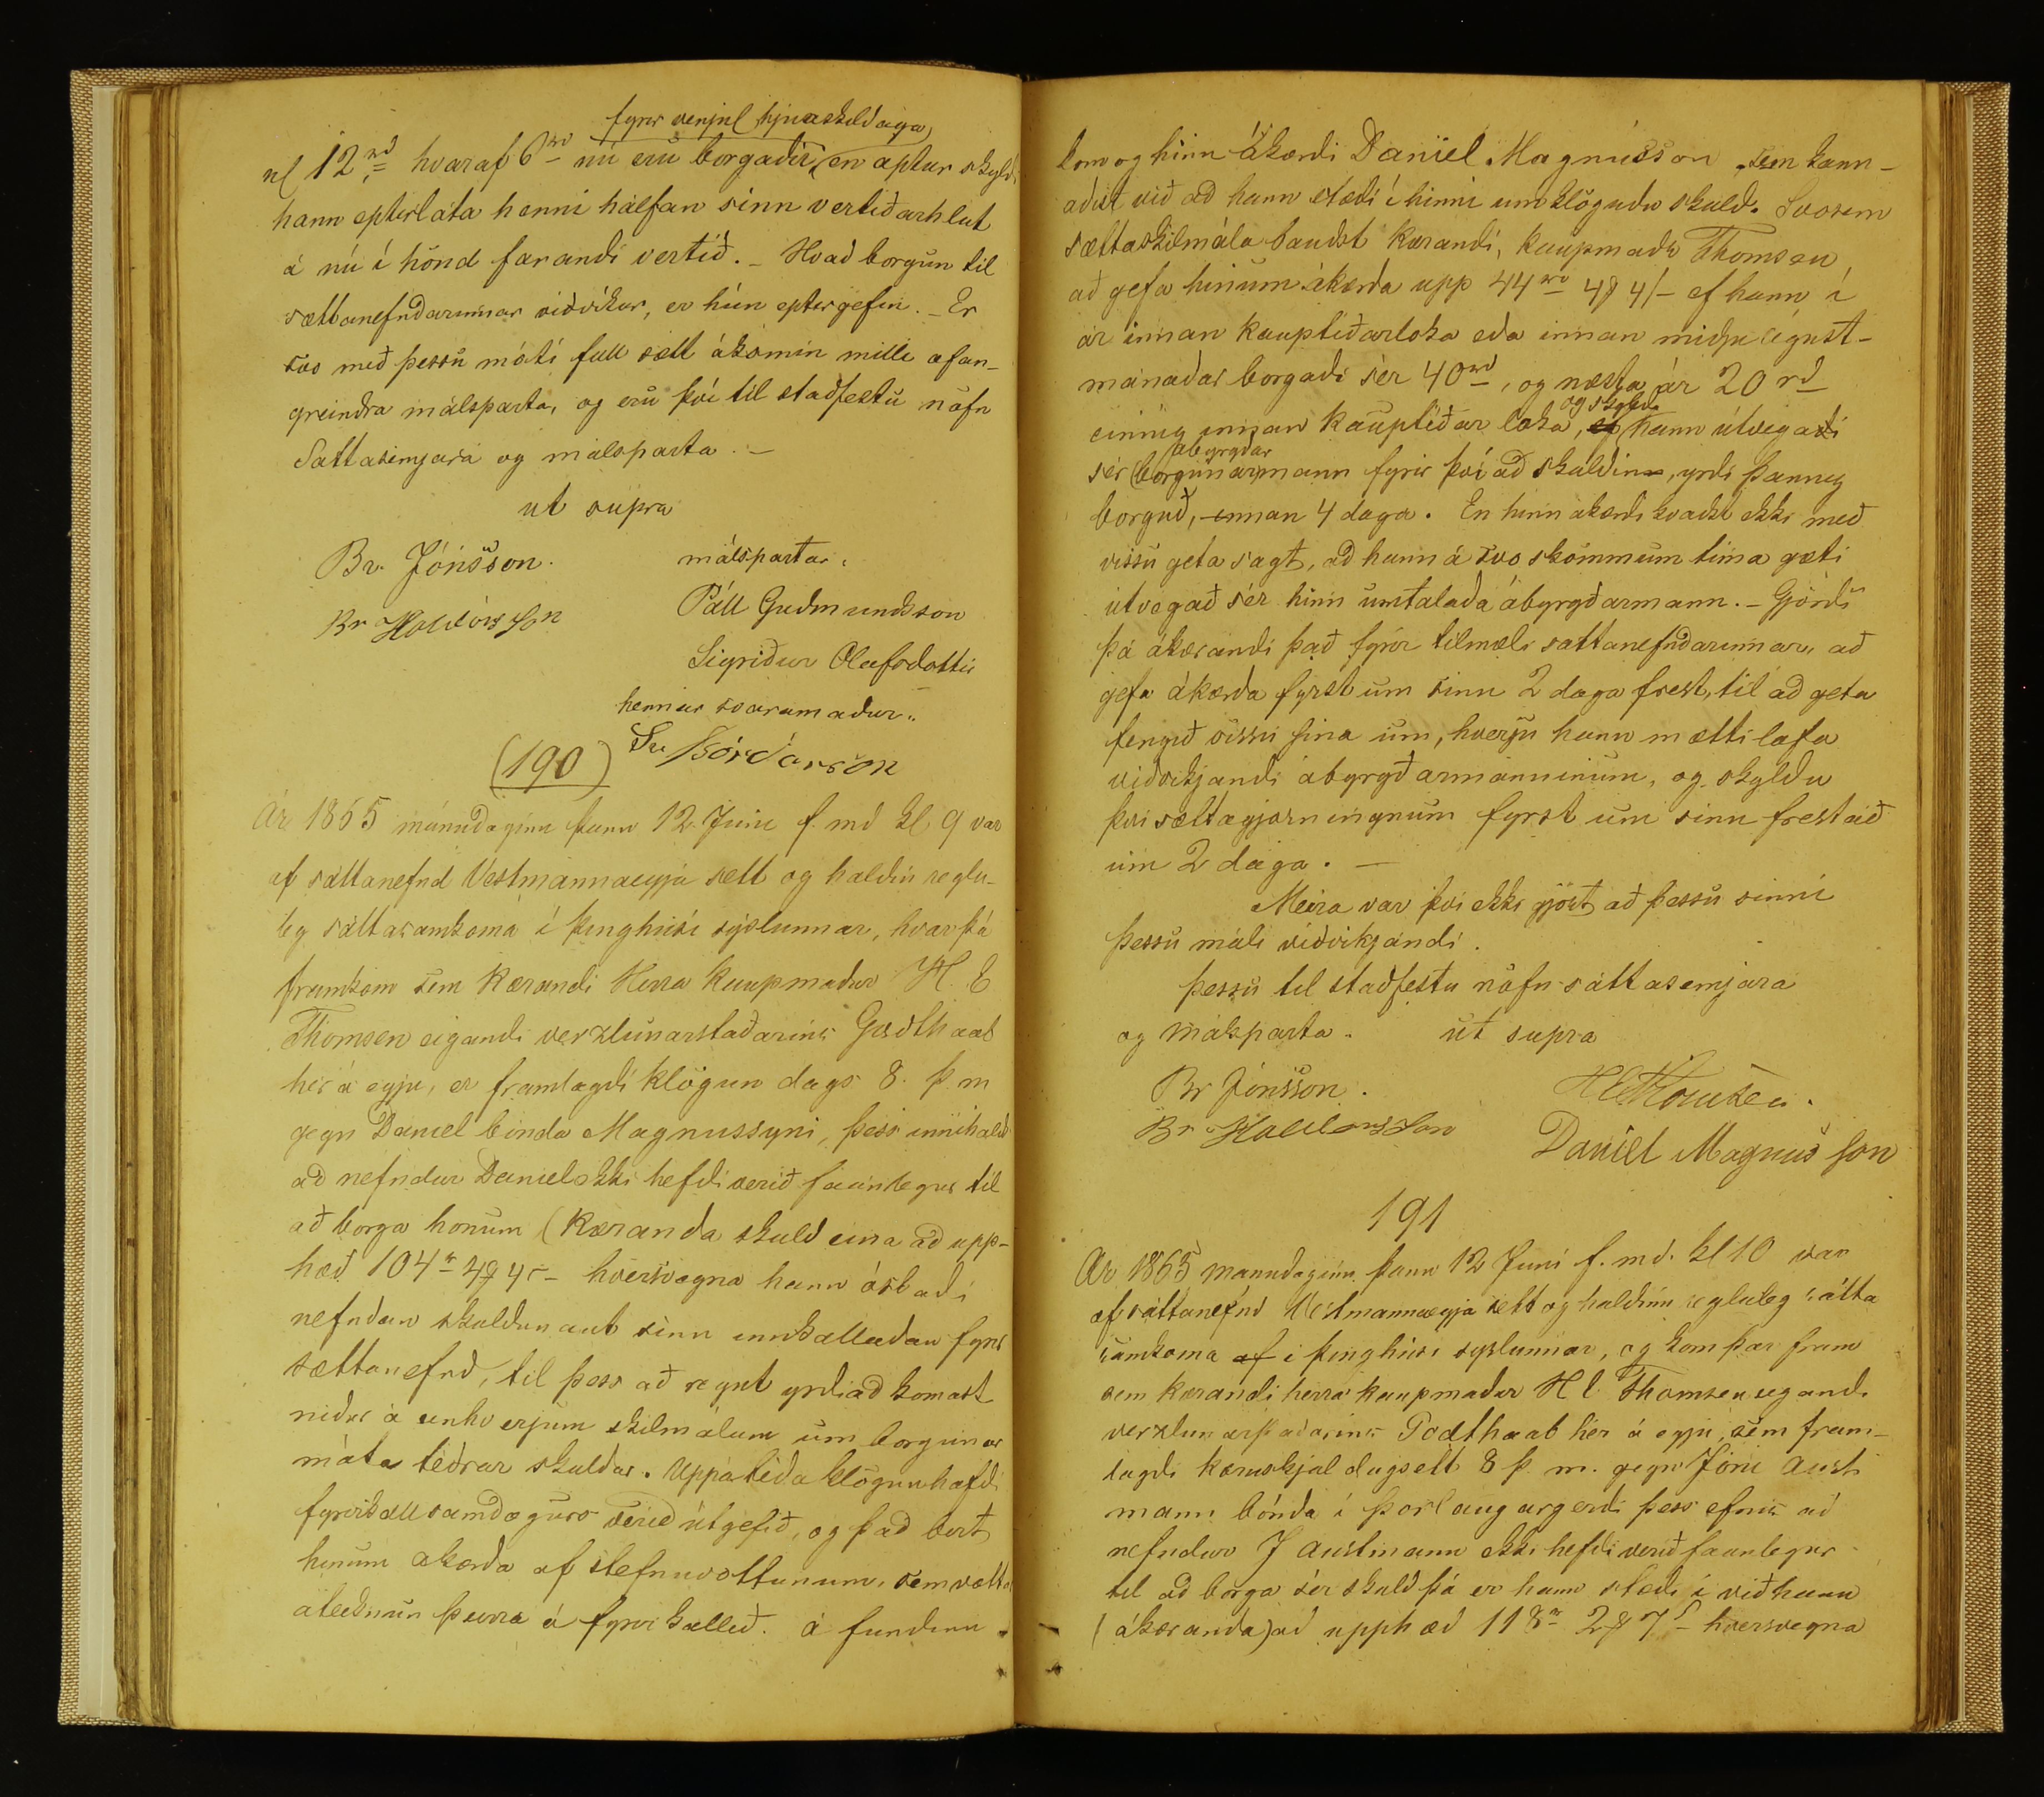 fyrir venjul hjúaskildaga
nl 12 rd hvaraf 6 rd nú eru borgaðir, en aptur skyldi
hann epterláta henni hálfan sinn vertíðarhlut
á nú í hönd farandi vertíð. - Hvað borgun til
sættanefndarinnar viðvíkur, er hún eptirgefin. - Er
svo með þessu móti full sætt ákomin milli ofan-
greindra málsparta, og eru því til staðfestu nöfn
Sáttasemjara og málsparta. -
ut supra
Br. Jónsson. málspartar.
Br Halldórsson Páll Guðmundsson
Sigríður Olafsdottir
hennar svaramaður.
Sv Þórðarson
(190)
Ár 1865 mánudaginn þann 12. Júní f. md kl 9 var
af sáttanefnd Vestmannaeyja sett og haldin reglu-
leg sáttasamkoma í þinghúsi sýslunnar, hvar þá
framkom sem Kærandi Herra kaupmaður H. E
Thomsen eigandi verzlunarstaðarins Godthaab
hér á eyju, er framlagði klögun dags 8. þ. m
gegn Daniel bónda Magnussyni, þess innihalds
að nefndur Daniel ekki hefdi verið fáanlegur til
að borga honum (Kæranda skuld eina að upp-
hæð 104 r 4 ƒ 4 s - hversvegna hann óskaði
nefndan skuldunaut sinn innkallaðan fyrir
sættanefnd, til þess að reynt yrdi að komast
niður á einhverjum skilmálum um borgunar
máta téðrar skuldar. Uppá téða klögun hafdi
fyrirkall samdægurs verið útgefið, og það birt
hinum ákærda af stefnuvottunum, sem vottar
áteiknun þeirra á fyrirkallið. á fundinn
kom og hinn ákærdi Daniel Magnússon sem kann-
aðist við að hann stædi í hinni umklöguðu skuld. Svosem
sættaskilmála bauðst kærandi, kaupmaðr Thomsen
að gefa hinum ákærda upp 44 rd 4 ƒ 4 / - ef hann í
ár innan kauptíðarloka eða innan miðju ágúst-
mánaðar borgaði sér 40 rd, og næsta ár 20 rd
einnig innan kauptíðar loka, og skyldi hann útvega
sér ábyrgðarmann fyrir því að skuldin, yrdi þannig
borguð, innan 4 daga. En hinn ákærdi kvaðst ekki með
vissu geta sagt, að hann á svo skömmum tíma gæti
útvegað sér hinn umtalaða ábyrgðarmann. - Gjörði
þá ákærandi það fyrir tilmæli sáttanefndarinnar, að
gefa ákærða fyrst um sinn 2 daga frest, til að geta
fengið vissu sína um, hverju hann mætti lofa
viðvíkjandi ábyrgðarmanninum, og skyldu
því sættagjörningnum fyrst um sinn frestað
um 2 daga. -
Meira var því ekki gjört að þessu sinni
þessu máli viðvíkjandi.
Þessu til staðfestu nöfn sáttasemjara
og málsparta. ut supra
Br Jónsson. HE Thomsen.
Br Halldorsson Daniel Magnússon
191
Ár 1865 mánudaginn þann 12 Juni f. md. kl 10 var
af sáttanefnd Vestmannaeyja sett og haldinn regluleg sátta
samkoma af í þinghúsi syslunnar, og kom þar fram
sem kærandi herra kaupmaður H E Thomsen eigandi
verzlunarstaðarins Godthaab hér á eyju, sem fram-
lagði kæruskjal dagsett 8 þ. m. gegn Jóni Aust
mann bónda í Þorlaugargerdi þess efnis að
nefndur J Austmann ekki hefdi verið fáanlegur
til að borga sér skuld þá er hann stædi í við hann
(ákæranda) að upphæð 118 r 2 ƒ 7 s - hversvegna